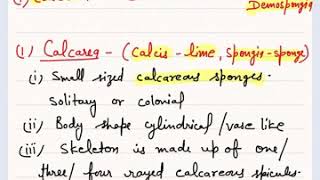 Demospongia
(1) Calcarea - (calcis - lime, spongia - sponge)
(i) Small sized calcareous sponges.
Solitary or colonial
(ii) Body shape cylindrical/vase like
(iii) Skeleton is made up of one/
three/ four rayed calcareous spicules.